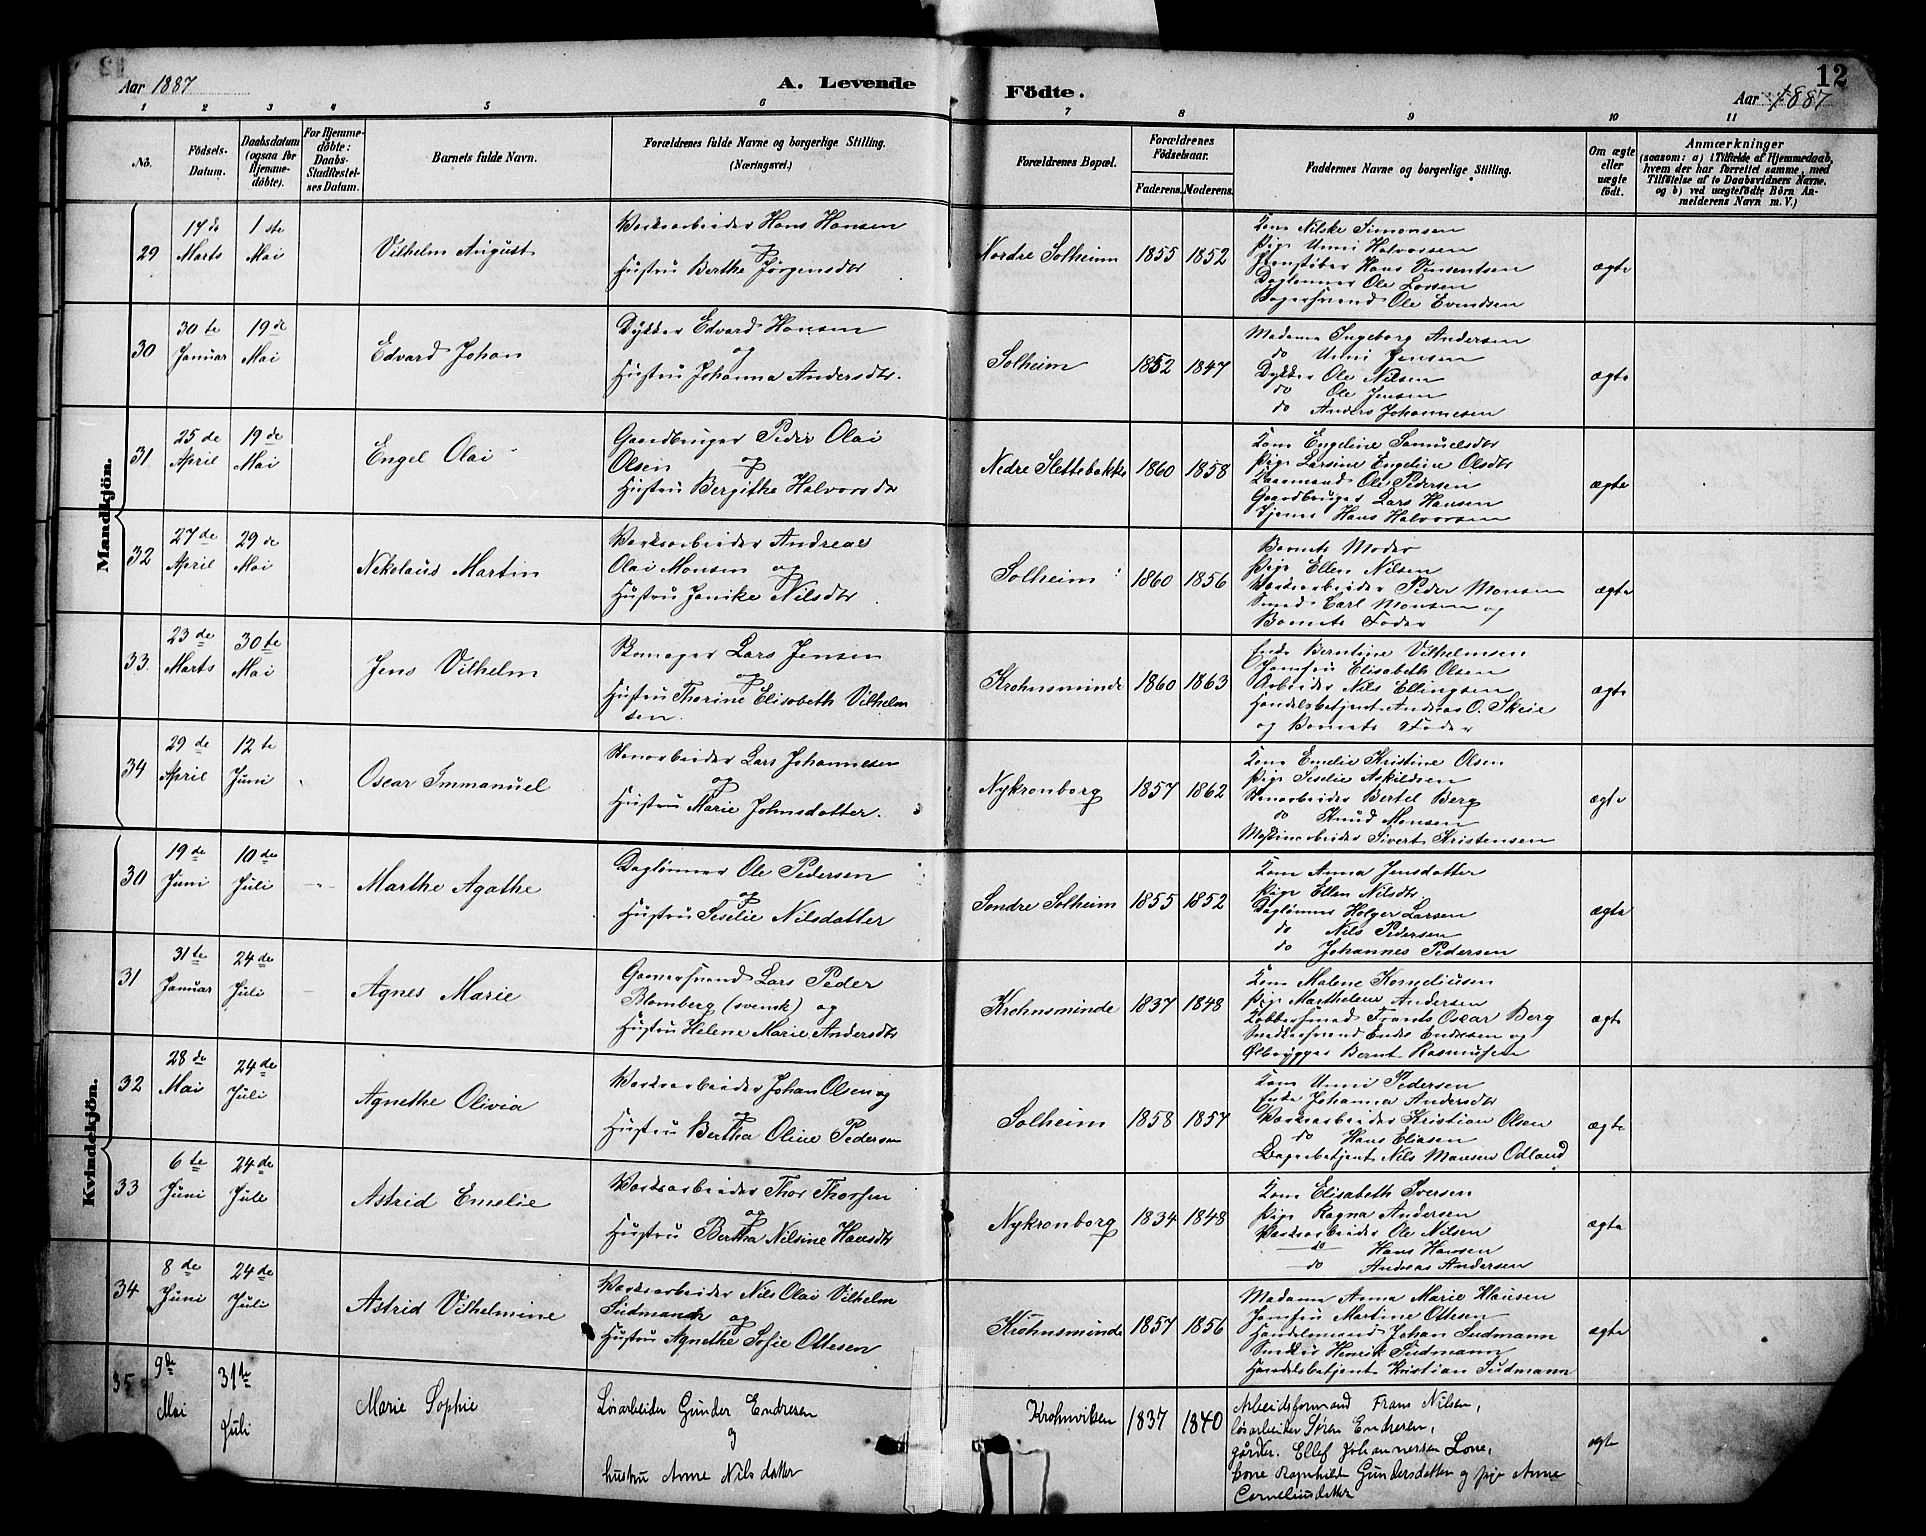 12
Aar 1887
A. Levende Födte.
Aar 1887
1 2 3 4 5 6 7 8 9 10 11
No.
Födsels-Datum.
Daabsdatum (ogsaa for Hjemmedöbte).
For Hjemmedöbte: Daabs-Stadfæstelses Datum.
Barnets fulde Navn.
Forældrenes fulde Navne og borgerlige Stilling. (Næringsvei.)
Forældrenes Bopæl.
Forældrenes Födselsaar.
Faderens. Moderens.
Faddernes Navne og borgerlige Stilling.
Om ægte eller uægte födt.
Anmærkninger
(saasom: a) i Tilfælde af Hjemmedaab,
hvem der har forrettet samme, med
Tilföielse af to Daabsvidners Navne.
og b) ved uægtefödte Börn Anmelderens Navn m. V.)
Mandkjön.
29
14de Marts
1ste Mai
Vilhelm August
Værksarbeider Hans Hansen
og
Hustru Berthe Jörgensdtr
Nordre Solheim
1855 1852
Kone Nilske Simonsen
Pige Unni Halvorsen
Hans Vinsentsen
Daglönner Ole Larsen
Bagersvend Ole Evindsen
ægte
30
30te Januar
19de Mai
Edvard Johan
Dykker Edvard Hansen
og
Hustru Johanna Andersdtr.
Solheim
1852 1847
Madame Ingeborg Andersen
do Unni Jensen
Dykker Ole Nilsen
do Ole Jensen
do Anders Johannesen
ægte
31
25de April
19de Mai
Engel Olai
Gaardbruger Peder Olai
Olsen og
Hustru Bergithe Halvorsdtr
Nedre Slettebakke
1860 1858
Kone Engeline Samuelsdtr
Pige Larsine Engeline Olsdtr
Ole Pedersen
Gaardbruger Lars Hansen
Tjener Hans Halvorsen
ægte
32
27de April
29de Mai
Nikolaus Martin
Værksarbeider Andreas
Olai Monsen og
Hustru Janike Nilsdtr
Solheim
1860 1856
Barnets Moder
Pige Ellen Nilsen
Værksarbeider Peder Monsen
Smed Carl Monsen og
Barnets Fader
ægte
33.
23de Marts
30te Mai
Jens Vilhelm
Skomager Lars Jensen
og
Hustru Thorine Elisabeth Vilhelm
sen.
Krohnsminde
1860 1863
Enke Berntine Vilhelmsen
Jomfru Elisabeth Olsen
Arbeider Nils Ellingsen
Handelsbetjent Andreas O. Skeie
og Barnets Fader
ægte
34
29de April
12te Juni
Oscar Immanuel
Stenarbeider Lars Johannesen
og
Hustru Marie Johnsdatter.
Nykronborg
1857 1862
Kone Emelie Kristine Olsen
Pige Seselie Askildsen
Stenarbeider Bertel Berg
do Knud Monsen
Maskinarbeider Sivert Kristensen
ægte
Kvindekjön.
30
19de Juni
10de Juli
Marthe Agathe
Daglönner Ole Pedersen
og
Hustru Seselie Nilsdatter
Söndre Solheim
1855 1852
Kone Anna Jensdatter
Pige Ellen Nilsdtr
Daglönner Holger Larsen
do Nils Pedersen
do Johannes Pedersen
ægte
31
31te Januar
24de Juli
Agnes Marie
Garversvend Lars Peder
Blomberg (svensk) og
Hustru Helene Marie Andersdtr
Krohnsminde
1837 1848
Kone Malene Korneliusen
Pige Marthelene Andersen
Kobbersmed Frants Oscar Berg
Snedkersvend Endre Endresen og
Ølbrygger Bernt Rasmussen
ægte
32
28de Mai
24de Juli
Agnethe Olivia
Værksarbeider Johan Olsen og
og
Hustru Bertha Oline Pedersen
Solheim
1858 1857
Kone Unni Pedersen
Enke Johanna Andersdtr
Værksarbeider Kristian Olsen
do Hans Eliasen
Nils Monsen Odland
ægte
33
6te Juni
24de Jule
Astrid Emelie
Værksarbeider Thor Thorsen
og
Hustru Bertha Nilsine Hansdtr
Nykronborg
1834 1848
Kone Elisabeth Iversen
Pige Ragna Andersen
Værksarbeider Ole Nilsen
do Hans Hansen
do Andreas Andersen
ægte
34
8de Juni
24de Juli
Astrid Vilhelmine
Værksarbeider Nils Olai Vilhelm
Sudmann og
Hustru Agnethe Sofie Ottesen
Krohnsminde
1857 1856
Madame Anna Marie Klausen
Jomfru Martine Ottesen
Handelsmand Johan Sudmann
Snedker Henrik Sudmann
Handelsbetjent Kristian Sudmann
ægte
35
9de Mai
31te Juli
Marie Sophie
Lösarbeider Gunder Endresen
og
hustru Anne Nilsdatter
Krohnviken
1837 1840
Arbeidsformand Frans Nilsen,
lösarbeider Sören Endresen,
gårdbr. Ellef Johannessen Lone,
kone Ragnhild Gundersdatter og pige Anne
Corneliusdatter
ægte